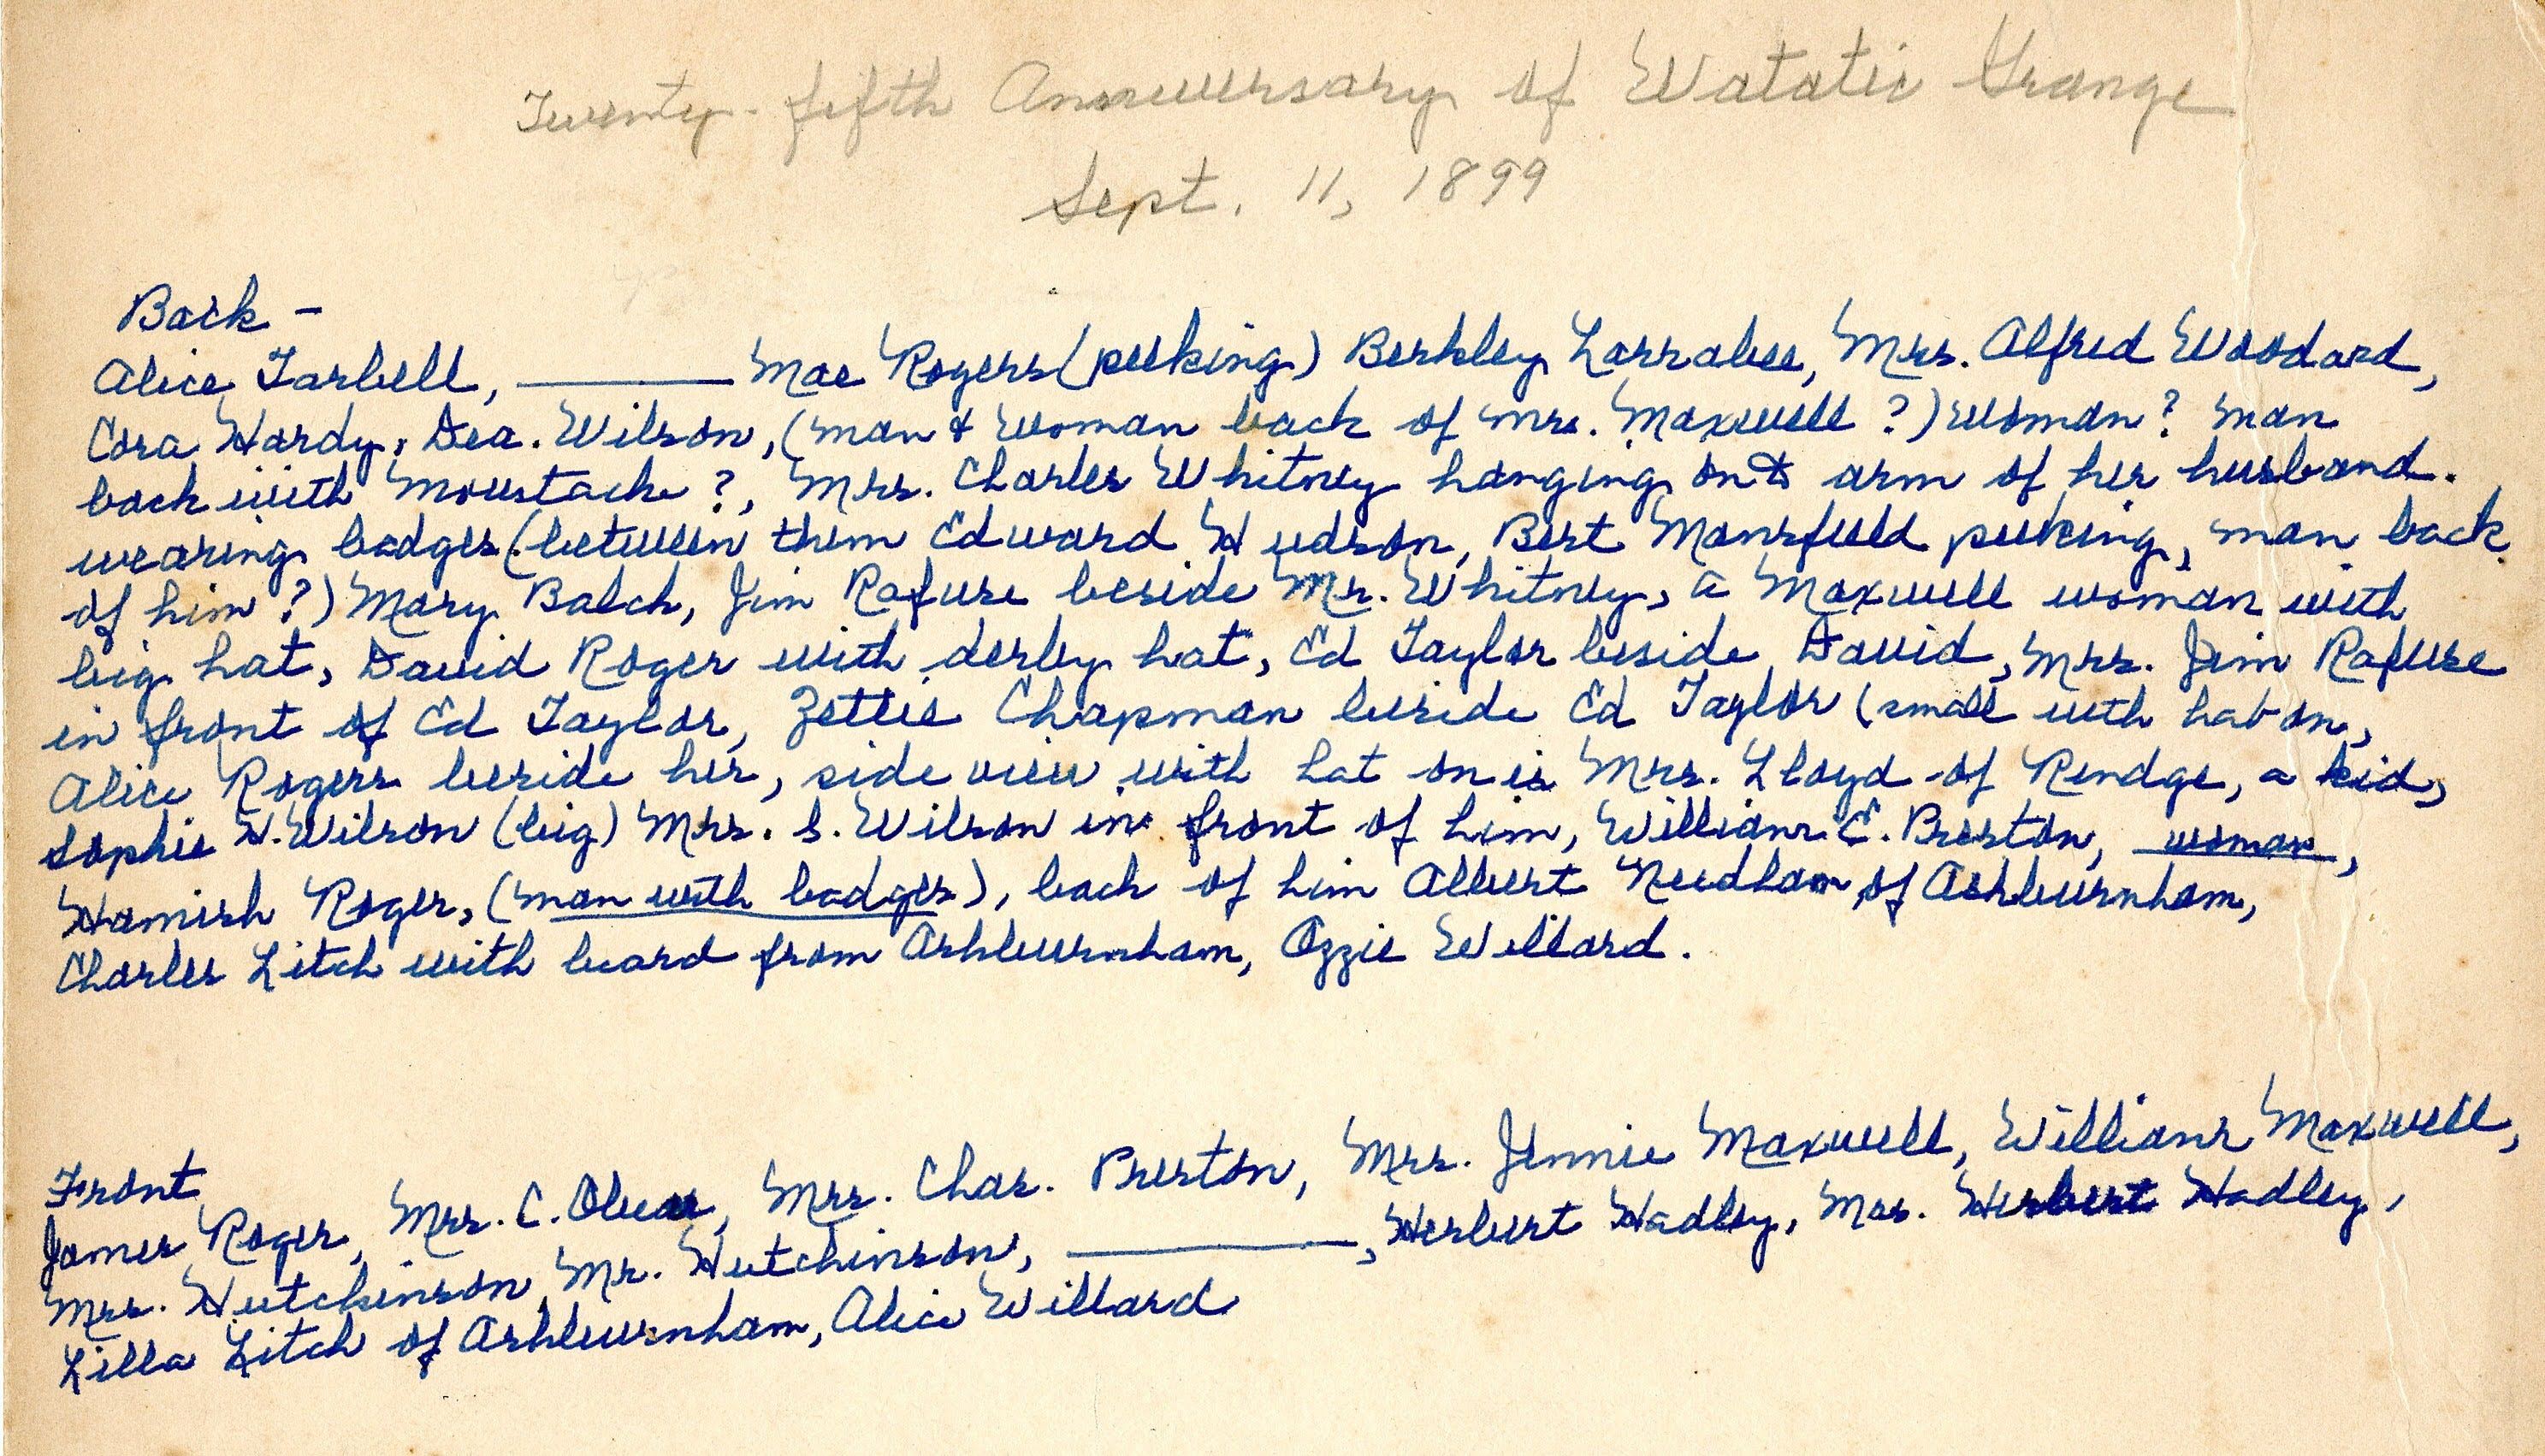 Twenty-fifth Anniversary of Watatic Grange
Sept. 11, 1899
Back -
Alice Tarbell, ________ Mae Rogers (peeking) Berkley Larrabee, Mrs. Alfred Woodard,
Cora Hardy, Dea. Wilson, (man & woman back of Mrs. Maxwell ?) woman? man
back with moustache ?, Mrs. Charles Whitney hanging onto arm of her husband.
wearing badges (between them Edward Hudson, Bert Mansfield peeking, man back
of him ?) Mary Balch, Jim Rafuse beside Mr. Whitney, a Maxwell woman with
big hat, David Roger with derby hat, Ed Taylor beside David, Mrs. Jim Rafuse
in front of Ed Taylor, Zettie Chapman beside Ed Taylor (small with hat on,
Alice Rogers beside her, side view with hat on is Mrs. Lloyd of Rindge, a kid,
Sophie H. Wilson (big) Mrs. S. Wilson in front of him, William E. Preston, woman,
Hamish Roger, (man with badges), back of him Albert Needham of Ashburnham,
Charles Litch with beard from Ashburnham, Ozzie Willard.
Front
James Roger, Mrs. C. Mrs. Chas. Preston, Mrs. Jennie Maxwell, William Maxwell,
Mrs. Hutchinson, Mr. Hutchinson, ________, Herbert Hadley, Mrs. Herbert Hadley,
Lilla Litch of Ashburnham, Alice Willard